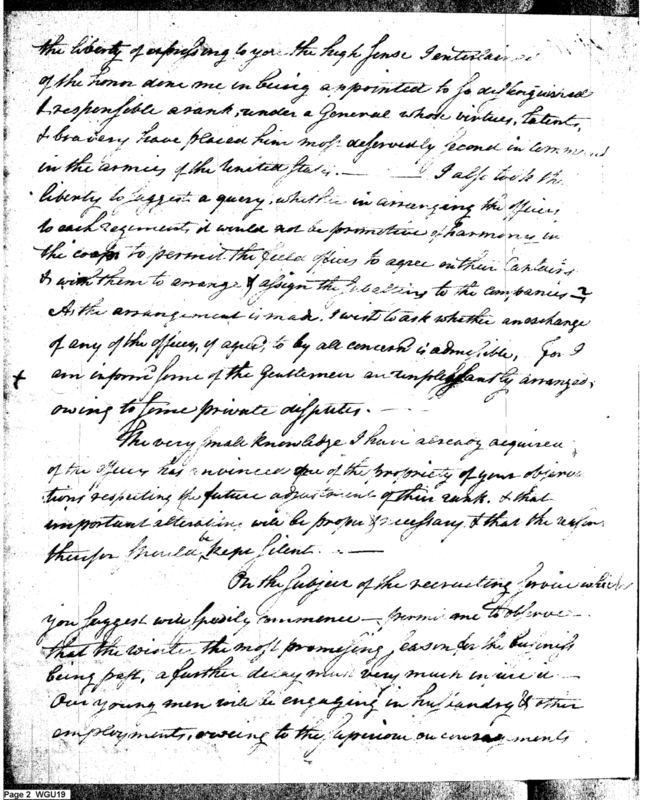 the liberty of expressing to you the high sense I entertained
of the honor done me in being appointed to so distinguished
& responsible a rank, under a General whose virtues, talents,
& bravery have placed him most deservedly second in command
in the armies of the United States. — I also took the
liberty to suggest a query, whether in arranging the officers
to each regiment, it would not be promotive of harmony in
the corps to permit the field officers to agree on their Captains
& with them to arrange & assign the subalterns to the companies—?
As the arrangement is made, I wish to ask whether an exchange
of any of the officers, if agreed to by all concern'd is admissible, for I
am inform'd some of the Gentlemen are unpleasantly arranged,
owing to some private disputes. —
The very small knowledge I have already acquired
of the officers has convinced me of the propriety of your observa
tions respecting the future adjustment of their rank. & that
important alterations will be proper & necessary & that the reasons
therefor should be kept silent. —
On the subject of the recruiting service which
you suggest will speedily commence — permit me to observe —
that the winter the most promising season for the business
being past, a further delay must very much injure it —
Our young men will be engaging in husbandry & other
employments, owing to the superior encouragements
Page 2 WGU19